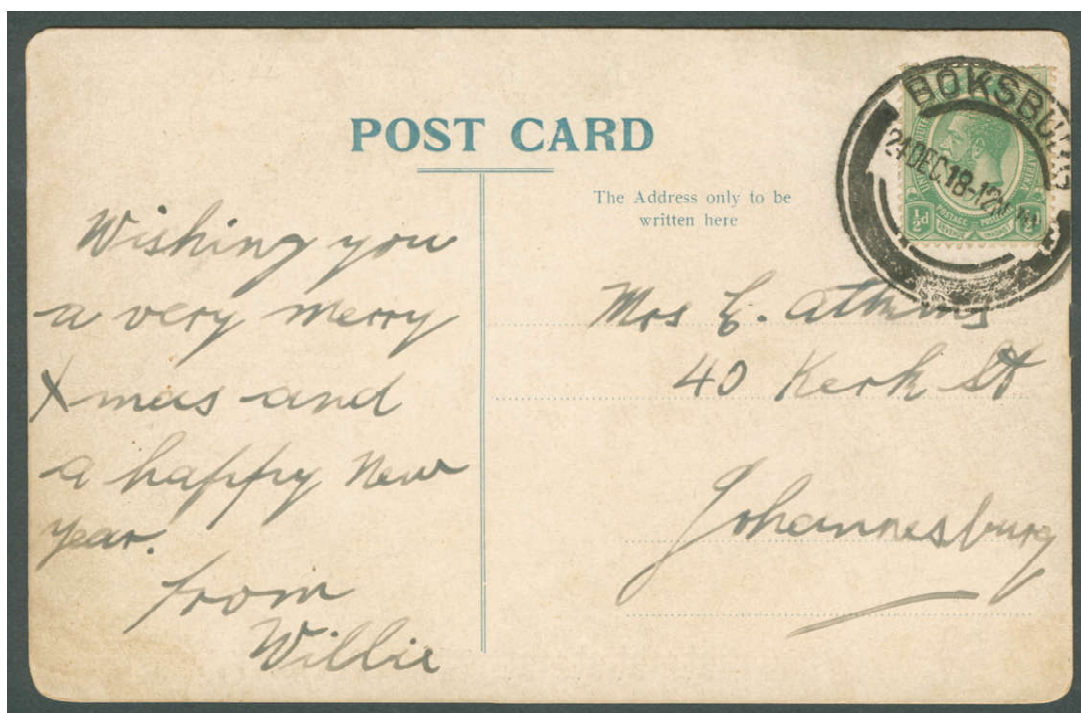 POST CARD
The Address only to be
written here
BOKSBURG
24 DEC 18-12
½d
½d
POSTAGE
POSTAGE
REVENUE
INKOMST
Wishing you
a very merry
Xmas and
a happy New
year.
from
Willie
Mrs E. Atkins
40 Kerk St
Johannesburg